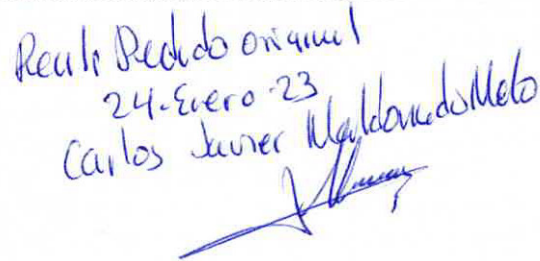 Recibí Pedido original
24-Enero-23
Carlos Javier Maldonado Melo